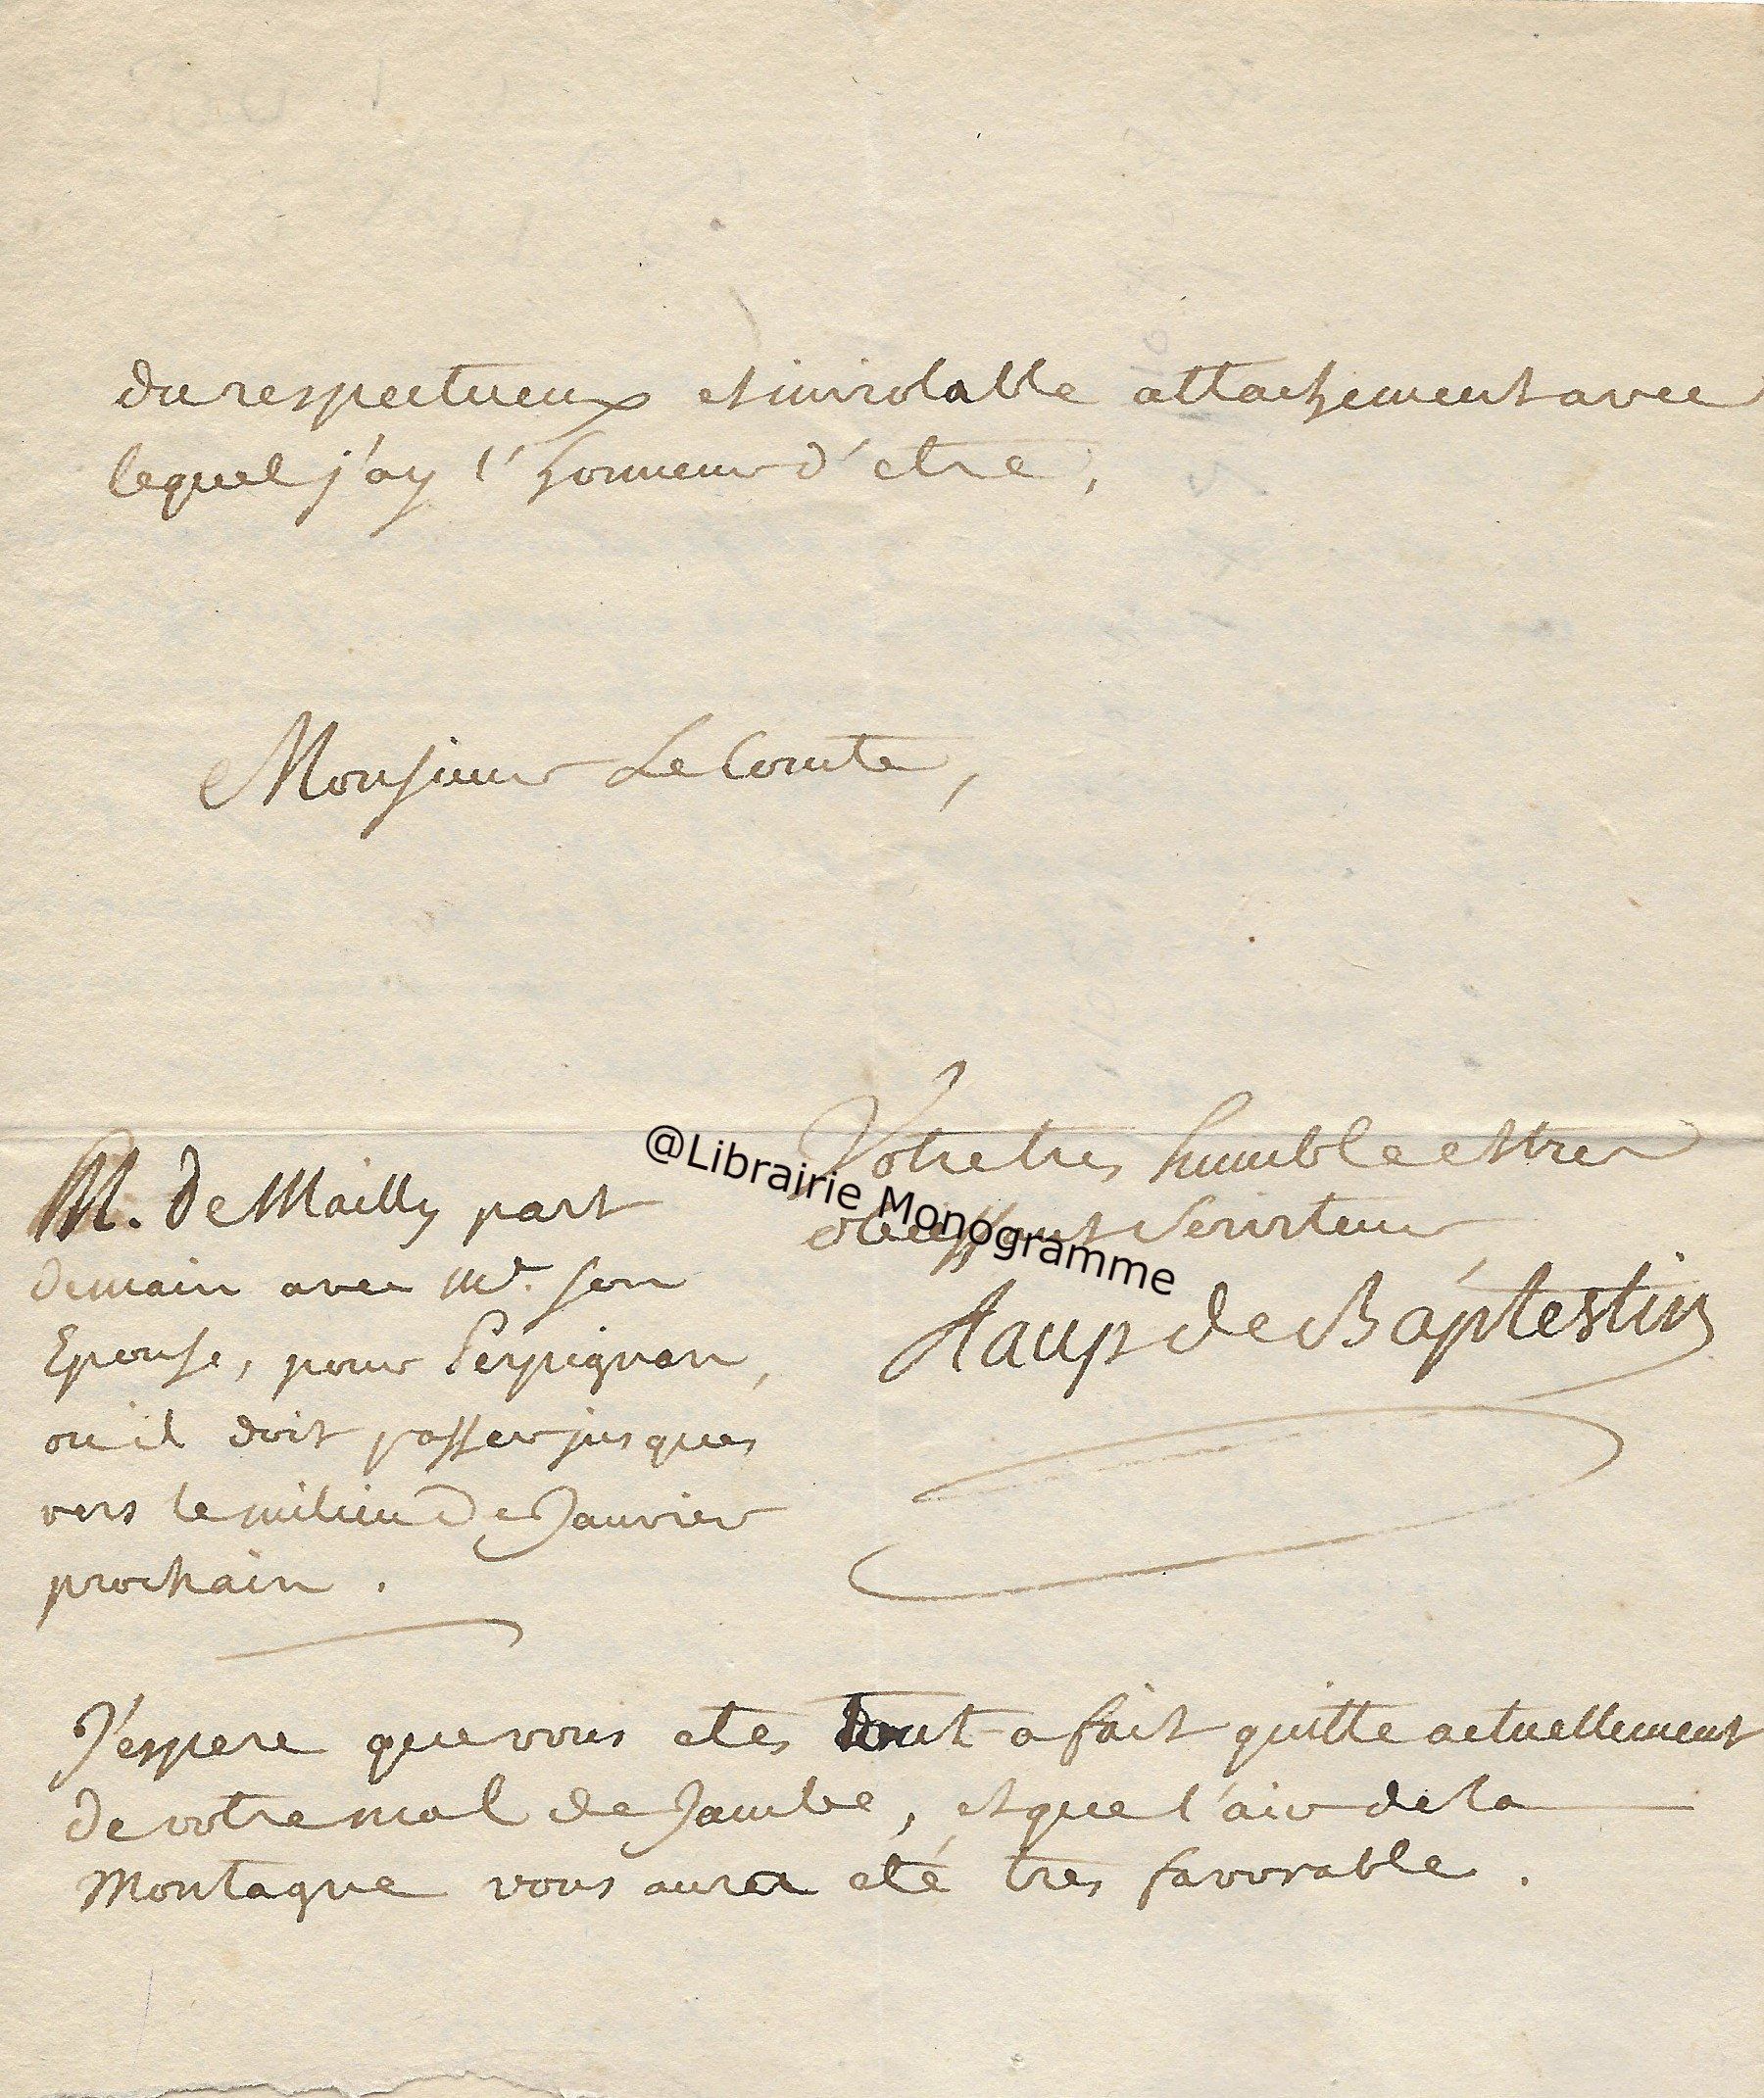 du respectueux et inviolable attachement avec
lequel j'ay l'honneur d'etre,
Monsieur Le Comte,
Votre tres humble et tres
obeissant Serviteur
Haup de Baptestin
@Librairie Monogramme
M. de Mailly part
demain avec Me. son
Epouse, pour Perpignan,
ou il doit passer jusques
vers le milieu de Janvier
prochain.
J'espere que vous etes tout a fait quitte actuellement
de votre mal de Jambe, et que l'air de la
Montagne vous aura eté tres favorable.